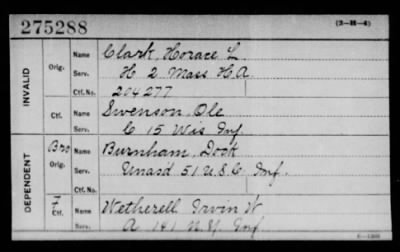 275288
(3-H-4)
INVALID
Orig.
Name Clark, Horace L
Serv. H 2 Mass H.A.
Ctf. No. 204277
Ctf.
Name Swenson, Ole
Serv. C 15 Wis Inf.
DEPENDENT
Bro
Orig.
Name Burnham, Dock
Serv. Unas'd 51 U.S.C. Inf.
Ctf. No.
F
Ctf.
Name Wetherell Irvin W
Serv. A 141 N.Y. Inf